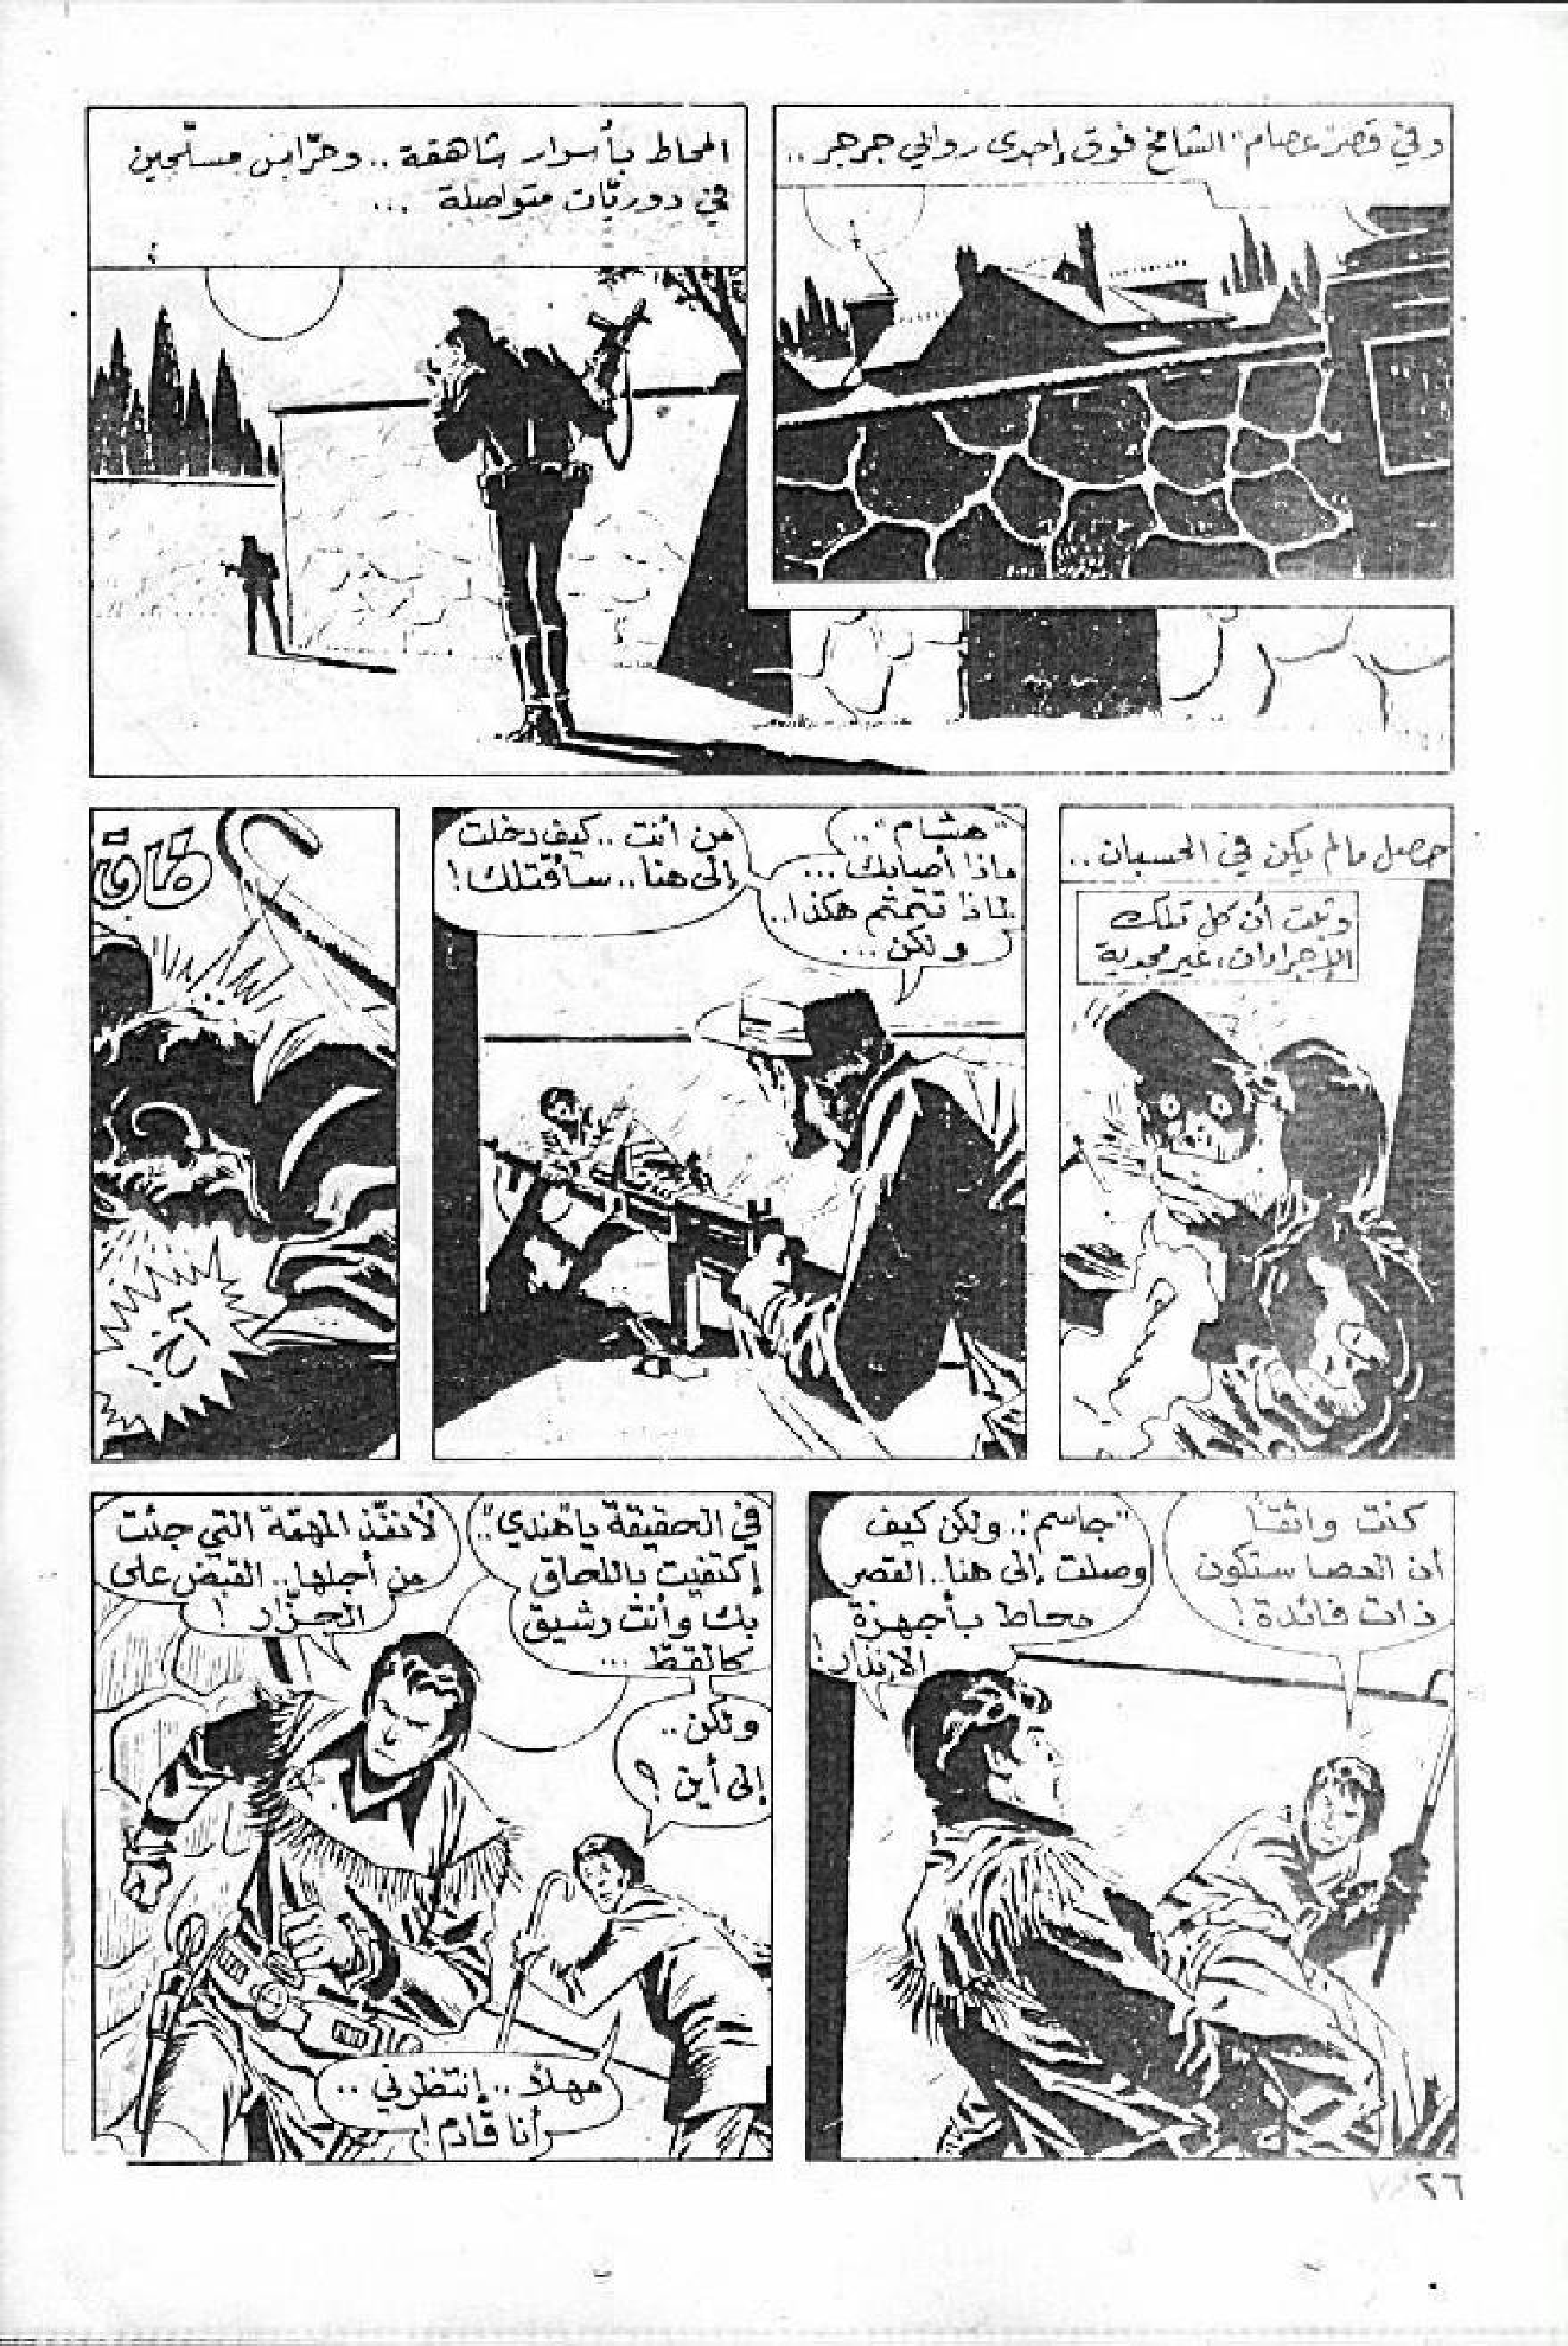 وفي قصر "عصام" الشامخ فوق إحدى روابي جرجر ..
المحاط بأسوار شاهقة .. وحرّاس مسلّحين
في دوريّات متواصلة ...
حصل مالم يكن في الحسبان ..
وثبت أن كل تلك
الإجراءات، غير مجدية
"هشام" ..
ماذا أصابك ...
لماذا تتمتم هكذا ..
ولكن ...
من أنت .. كيف دخلت
إلى هنا .. سأقتلك !
طاق
آخ !
كنت واثقاً
أن العصا ستكون
ذات فائدة !
"جاسم" .. ولكن كيف
وصلت إلى هنا .. القصر
محاط بأجهزة
الإنذار !
في الحقيقة يا هندي ..
إكتفيت باللحاق
بك وأنت رشيق
كالقط ...
ولكن ..
إلى أين ؟
لأنفّذ المهمّة التي جئت
من أجلها .. القبض على
الجزّار !
مهلاً .. إنتظرني ..
أنا قادم !
٢٦